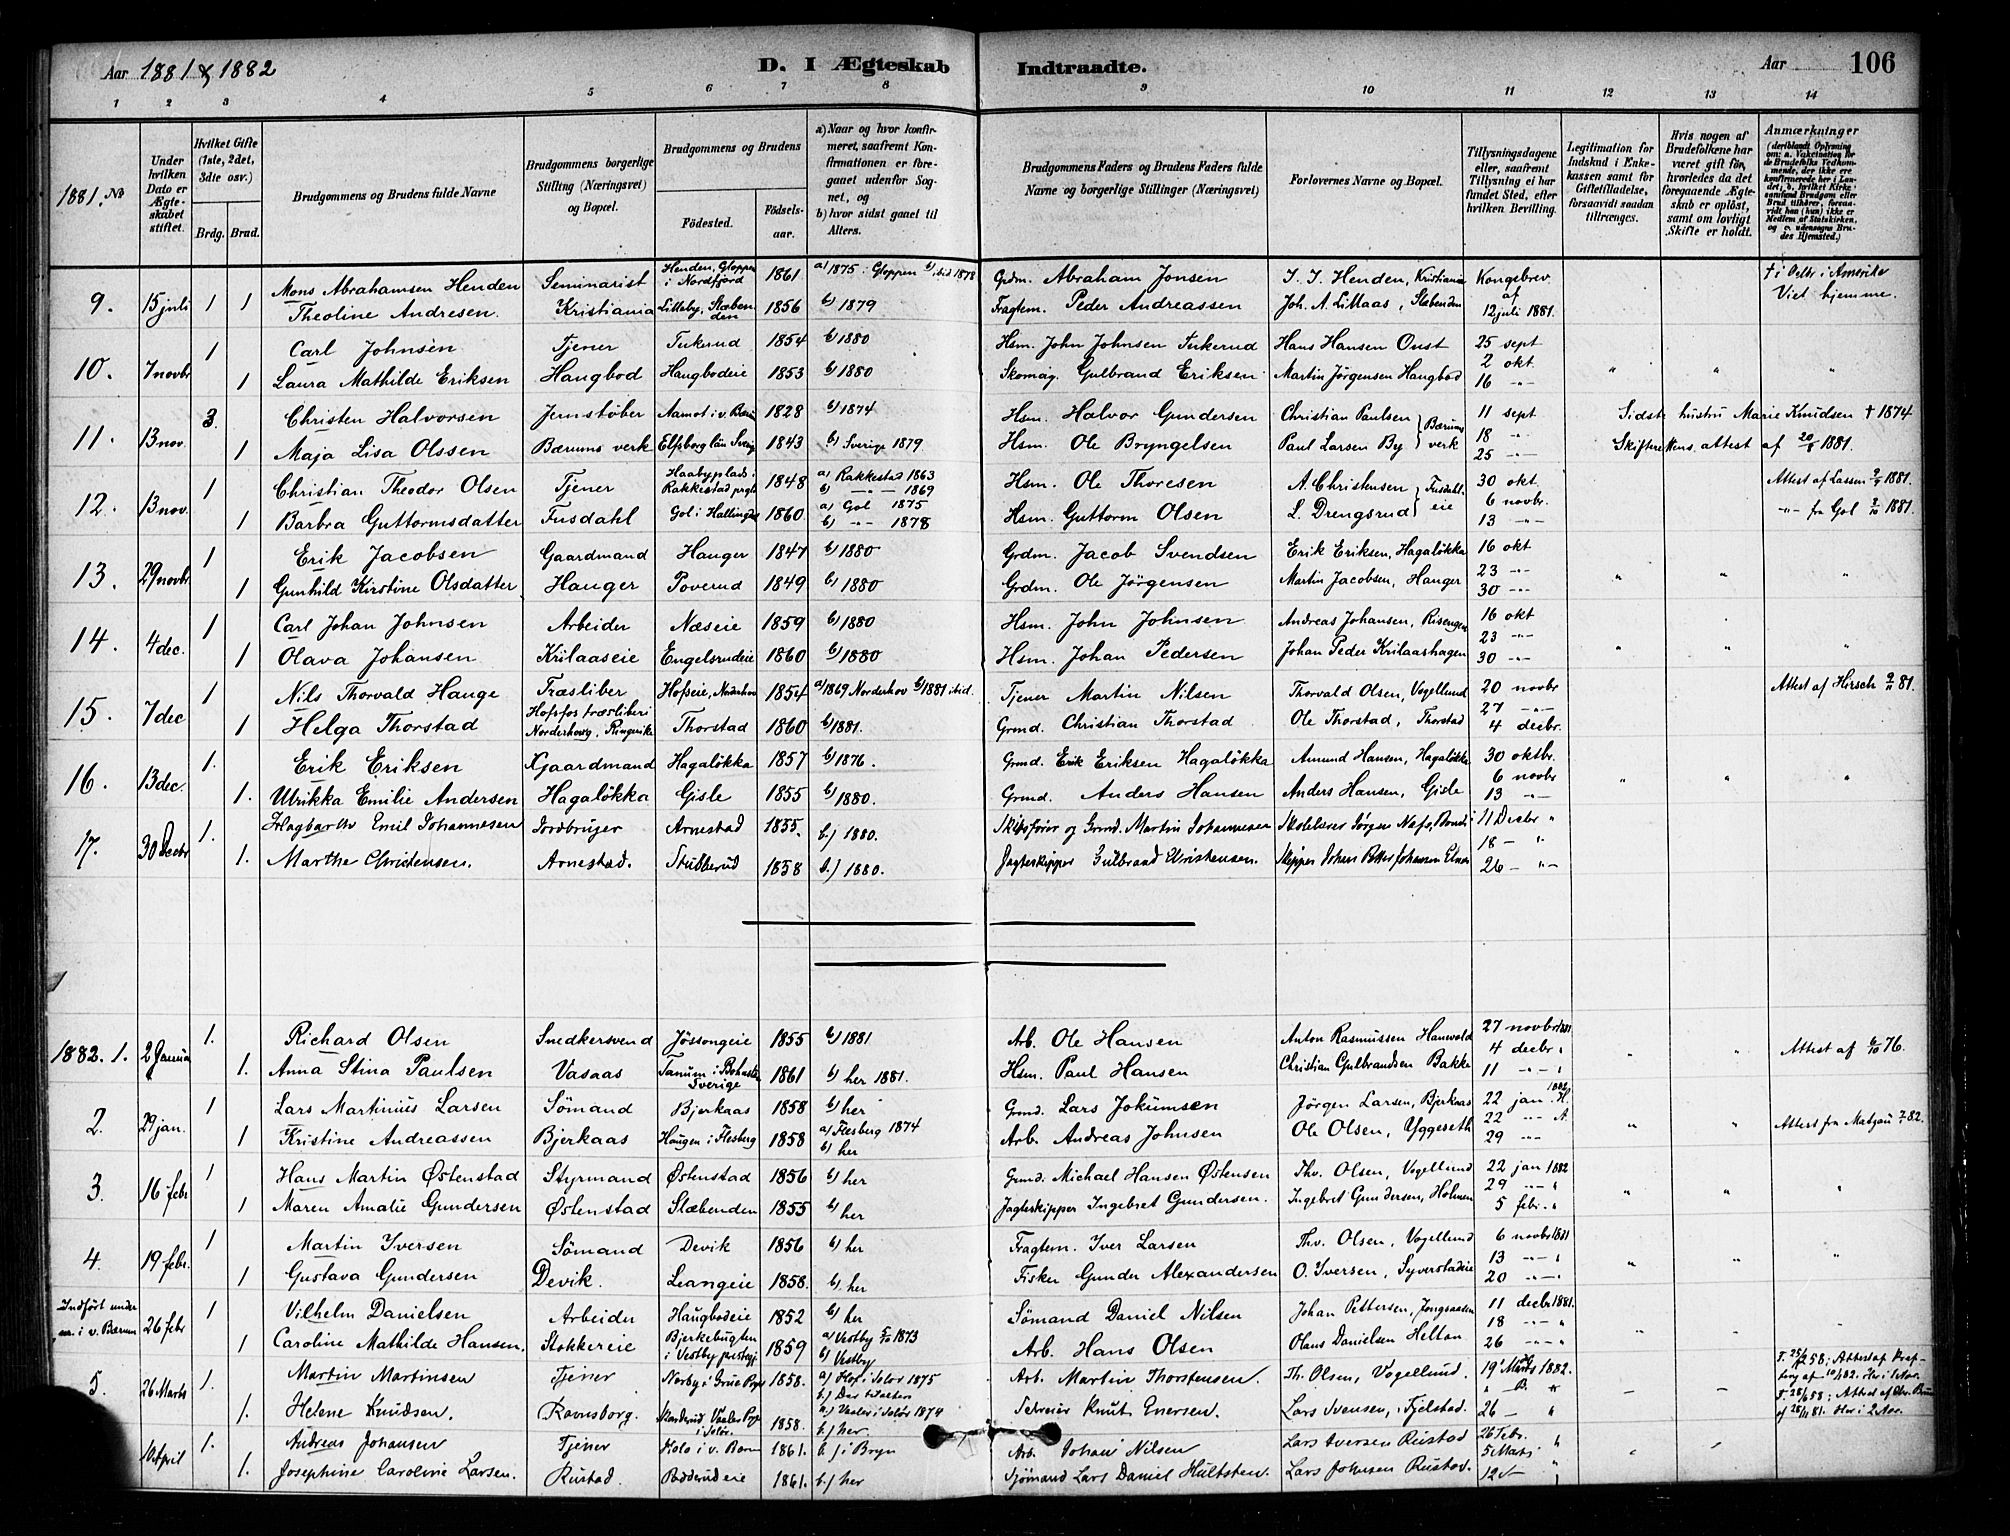 Aar 1881 & 1882
D. I Ægteskab
Indtraadte.
Aar 106
1 2 3 4 5 6 7 8 9 10 11 12 13 14
1881. No
Under hvilken Dato er Ægteskabet stiftet.
Hvilket Gifte (1ste, 2det, 3die osv.)
Brdg. Brud.
Brudgommens og Brudens fulde Navne
Brudgommens borgerlige Stilling (Næringsvei) og Bopæl.
Brudgommens og Brudens
Fødested.
Fødselsaar.
a) Naar og hvor konfirmeret, saafremt Konfirmationen er foregaaet udenfor Sognet, og
b) hvor sidst gaaet til Alters.
Brudgommens Faders og Brudens Faders fulde Navne og borgerlige Stillinger (Næringsvei)
Forlovernes Navne og Bopæl.
Tillysningsdagene eller, saafremt Tillysning ei har fundet Sted, efter hvilken Bevilling.
Legitimation for Indskud i Enkekassen samt for Giftetilladelse, forsaavidt saadan tiltrænges.
Hvis nogen af Brudefolkene har været gift før, hvorledes da det foregaaende Ægteskab er opløst, samt om lovligt Skifte er holdt.
Anmærkninger (deriblandt Oplysning om: a. Vakcination for de Brudefolks Vedkommende, der ikke ere konfirmerede her i Landet, b. hvilket Kirkesamfund Brudgom eller Brud tilhører, forsaavidt han (hun) ikke er Medlem af Statskirken, og c. udensogns Brudes Hjemsted.)
9. 15 juli 1 1 Mons Abrahamsen Henden Seminarist Henden, Gloppen i Nordfjord 1861 a) 1875 Gloppen b) ibid 1878 Grdm. Abraham Jonsen I. I. Henden, Kristiania Kongebrev † i Octbr i Amerika
Theoline Andresen. Kristiania Lilleby, Slæbenden 1856 b) 1879 Fragtem. Peder Andreassen Joh. A. Lillaas, Slæbenden af 12 juli 1881. Viet hjemme.
10. 7 novbr 1 Carl Johnsen Tjener 1854 b) 1880 Hsm. John Johnsen Hans Hansen Oust 25 sept
1 Laura Mathilde Eriksen Haugbod Haugbodeie 1853 b) 1880 Skomag. Gulbrand Eriksen Martin Jørgensen Haugbod 2 okt 16 -"- " " "
11. 13 nov. 3 Christen Halvorsen Jernstøber Aamot i v. Bærum 1828 b) 1874 Hsm. Halvor Gundersen Christian Paulsen } Bærums 11 sept Sidste hustru Marie Knudsen † 1874
1 Maja Lisa Olssen Bærums verk Elfsborg län Sverige 1843 b) Sverige 1879 Hsm. Ole Bryngelsen Paul Larsen By } verk 18 -"- 25 -"- Skifterettens attest af 20/8 1881.
12. 13 nov. 1 Christian Theodor Olsen Tjener Haabyplads i Rakkestad prgld 1848 a) Rakkestad 1863 b) -"- 1869 Hsm. Ole Thoresen A. Christensen } Fusdahl- 30 okt. Attest af Lassen 1881.
1 Barbra Guttormsdatter Fusdahl Gol i Hallingdal 1860 a) Gol 1875 b) -"- 1878 Hsm. Guttorm Olsen L. Drengsrud } eie 6 novbr. 13 -"- -"- fra Gol 1881.
13. 29 novbr 1 Erik Jacobsen Gaardmand Hauger 1847 b) 1880 Grdm. Jacob Svendsen Erik Eriksen, Hagaløkka 16 okt
1 Gunhild Kirstine Olsdatter. Hauger Poverud 1849 b) 1880 Grdm. Ole Jørgensen Martin Jacobsen, Hauger 23 -"- 30 -"- " " "
14. 4 dec. 1 Carl Johan Johnsen Arbeider Næseie 1859 b) 1880 Hsm. John Johnsen Andreas Johansen, Risengen 16 okt
1 Olava Johansen Krilaaseie Engelsrudeie 1860 b) 1880 Hsm. Johan Pedersen Johan Peder Krilaashagen 23 -"- 30 -"- " " "
15. 7 dec 1 Nils Thorvald Hauge Træsliber Hofseie, Norderhov 1854 a) 1869 Norderhov b) 1881 ibid. Tjener Martin Nilsen Thorvald Olsen, Vogellund 20 novbr Attest af Hirsch 9/11 81.
1 Helga Thorstad Hofsfos træsliberi Norderhovg. Ringerike Thorstad 1860 b) 1881. Grmd. Christian Thorstad Ole Thorstad, Thorstad 27 -"- 4 decbr.
16. 13 dec. 1. Erik Eriksen Gaardmand Hagaløkka 1857 b) 1876. Grmd. Erik Eriksen Hagaløkka Amund Hansen, Hagaløkka 30 oktbr.
1. Ulrikka Emilie Andersen Hagaløkka Gisle 1855 b) 1880. Grmd. Anders Hansen Anders Hansen, Gisle 6 novbr 13 -"- " " "
17. 30 Decbr 1. Hagbarth Emil Johannesen Jordbruger Arnestad 1855. b.) 1880. Skibsfører og Grmd. Martin Johannesen Skolelærer Jørgen Næss, Bondi 11 Decbr "
1. Marthe Christensen. Arnestad. Stubberud 1858 b.) 1880. Jagteskipper Gulbrand Christensen. Skipper Johan Petter Johansen 18 - " 26 - "
1882. 1. 2 Januar 1. Richard Olsen Snedkersvend Jøssongeie 1855 b) 1881 Arb. Ole Hansen Anton Rasmussen Hanevold 27 novbr 1881
1. Anna Stina Paulsen Vasaas Tanum i Bohuslen Sverige 1861 b) her 1881. Hsm. Paul Hansen Christian Gulbrandsen Bakke 4 decbr " 11 -"- " " " Attest af 6/10 76.
2. 29 jan. 1 Lars Martinius Larsen Sømand Bjerkaas 1858 b) her Grmd. Lars Jokumsen Jørgen Larsen, Bjerkaas 22 jan 1882 H.
1 Kristine Andreassen Bjerkaas Haugen i Flesberg 1858 a) Flesberg 1874 b) her Arb. Andreas Johnsen Ole Olsen, Yggeseth 22 -"- A 29 -"- " " Attest fra 82.
3. 16 febr 1 Hans Martin Østenstad Styrmand Østenstad 1856 b) her Grmd. Michael Hansen Østensen Thv. Olsen, Vogellund 22 jan 1882
1 Maren Amalie Gundersen Østenstad Slæbenden 1855 b) her Jagteskipper Ingebret Gundersen. Ingebret Gundersen, Holmen 29 -"- " 5 febr. " " " "
4. 19 febr. 1 Martin Iversen Sømand Devik 1856 b) her Fragtem. Iver Larsen Thv. Olsen, Vogellund 6 novbr 1881
1 Gustava Gundersen Devik. Leangeie 1858. b) her Fisker Gunder Alexandersen O. Iversen, Syverstadeie 13 -"- " 20 -"- " " " "
Indført under i v. Bærum 26 febr 1 Vilhelm Danielsen Arbeider Haugbodeie 1852 b) her Sømand Daniel Nilsen Johan Pettersen, Jongsaasen 11 decbr 1881.
1 Caroline Mathilde Hansen. Stokkereie Bjerkebugten i Vestby prstegj. 1859 a) Vestby 5/10 1873 b) Vestby Arb. Hans Olsen Olaus Danielsen Helton 18 -"- " 26 -"- " " " "
5. 26 Marts 1. Martin Martinsen Tjener Norby i Grue Prgd 1858. a) Hof i Solør 1875 b.) Der Arb. Martin Thorstensen. Th. Olsen, Vogellund. 19 Marts 1882.
1. Helene Knudsen. Ravnsborg. Vaaler Prgd i Solør. 1858. a.) Vaaler i Solør 1874 b.) her. Knut Enersen. Lars Svensen, Fjelstad. 26 - "
10 April 1. Andreas Johansen Tjener Holo i v. Bærum 1861. b.) i Bryn Arb. Johan Nilsen Lars Iversen Rustad 26 Febr. "
1. Josephine Caroline Larsen. Rustad. Bødderudeie 1861. b.) her Sjømand Lars Daniel Hultsten. Lars Johnsen Rustad. 5 Marts " 12 - "